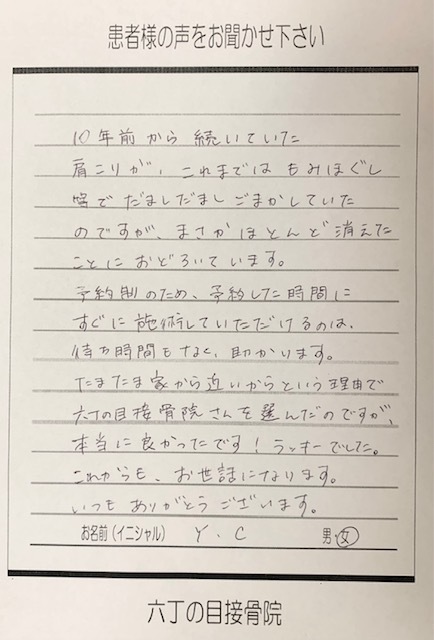 患者様の声をお聞かせ下さい
10年前から続いていた
肩こりが、これまではもみほぐし
等でだましだましごまかしていた
のですが、まさかほとんど消えた
ことにおどろいています。
予約制のため、予約した時間に
すぐに施術していただけるのは、
待ち時間もなく、助かります。
たまたま家から近いからという理由で
六丁の目接骨院さんを選んだのですが、
本当に良かったです！ラッキーでした。
これからも、お世話になります。
いつもありがとうございます。
お名前（イニシャル） Y．C 男・女
六丁の目接骨院